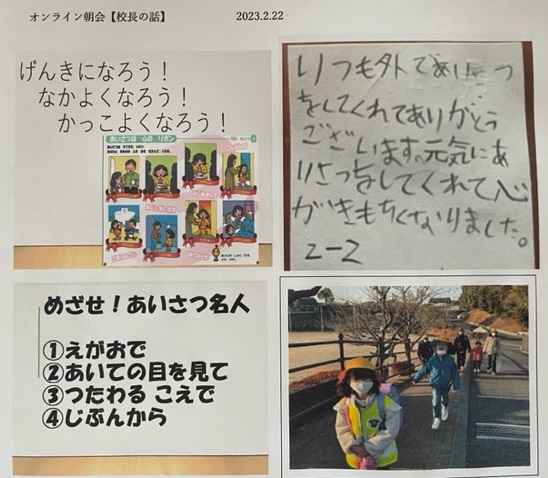 オンライン朝会【校長の話】 2023.2.22
げんきになろう！
なかよくなろう！
かっこよくなろう！
あいさつは 心の リボン
いつも外であいさつ
をしてくれてありがとう
ございます。元気にあ
いさつをしてくれて心
がきもちくなりました。
2-2
めざせ！あいさつ名人
①えがおで
②あいての目を見て
③つたわる こえで
④じぶんから